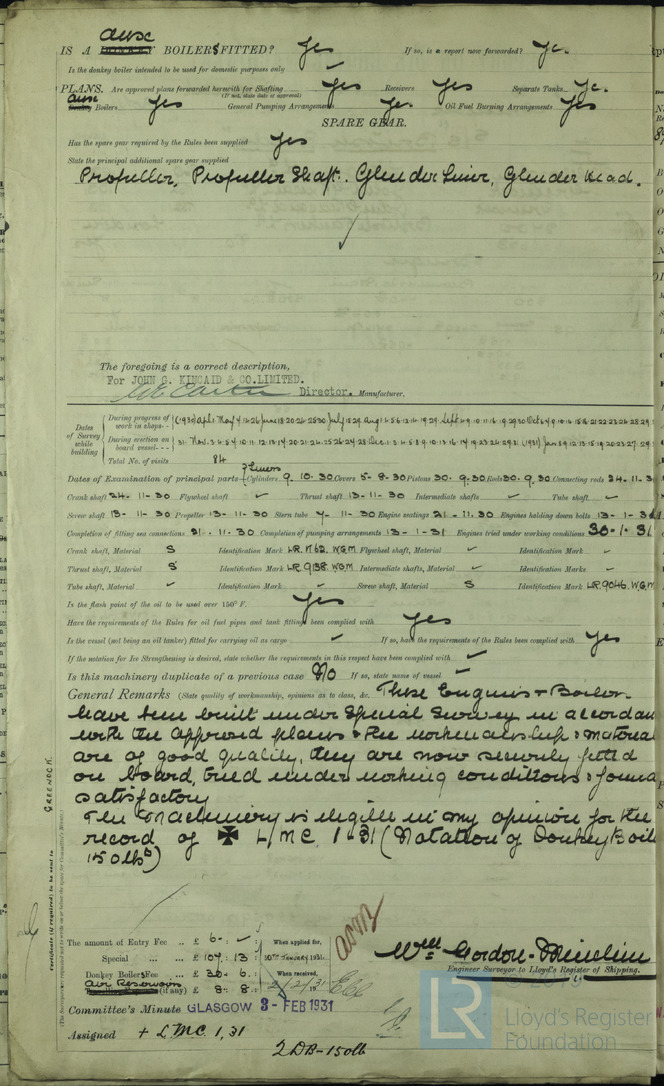 Aux
IS A DONKEY BOILERS FITTED? Yes If so, is a report now forwarded? Yes.
Is the donkey boiler intended to be used for domestic purposes only
PLANS. Are approved plans forwarded herewith for Shafting Yes Receivers Yes Separate Tanks Yes.
(If not, state date of approval)
Aux Donkey Boilers Yes General Pumping Arrangements Yes Oil Fuel Burning Arrangements Yes
SPARE GEAR.
Has the spare gear required by the Rules been supplied Yes
State the principal additional spare gear supplied
Propeller, Propeller Shaft. Cylinder Liner, Cylinder Head.
✓
The foregoing is a correct description,
For JOHN G. KINCAID & CO. LIMITED.
Director. Manufacturer.
Dates of Survey while building
During progress of work in shops - -
During erection on board vessel - - -
Total No. of visits 84
Dates of Examination of principal parts—Cylinders & Liners 9.10.30 Covers 5-8-30 Pistons 30.9.30 Rods 30.9.30 Connecting rods 24.11.3
Crank shaft 24-11-30 Flywheel shaft ✓ Thrust shaft 13-11-30 Intermediate shafts ✓ Tube shaft ✓
Screw shaft 13-11-30 Propeller 13-11-30 Stern tube 7-11-30 Engine seatings 21.11.30 Engines holding down bolts 13-1-3
Completion of fitting sea connections 21.11.30 Completion of pumping arrangements 13-1-31 Engines tried under working conditions 30.1.31
Crank shaft, Material S Identification Mark Flywheel shaft, Material ✓ Identification Mark ✓
Thrust shaft, Material S Identification Mark LR 9138. WGM Intermediate shafts, Material ✓ Identification Marks ✓
Tube shaft, Material ✓ Identification Mark ✓ Screw shaft, Material S Identification Mark LR 9046. WGM
Is the flash point of the oil to be used over 150° F. Yes
Have the requirements of the Rules for oil fuel pipes and tank fittings been complied with Yes
Is the vessel (not being an oil tanker) fitted for carrying oil as cargo ✓ If so, have the requirements of the Rules been complied with Yes
If the notation for Ice Strengthening is desired, state whether the requirements in this respect have been complied with ✓
Is this machinery duplicate of a previous case No If so, state name of vessel ✓
General Remarks (State quality of workmanship, opinions as to class, &c. These Engines & Boilers
have been built under Special Survey in accordan
with the approved plans & the workmanship & materia
are of good quality, they are now securely fitted
on board, tried under working conditions & found
satisfactory
The Machinery is eligible in my opinion for the
record of ✠ LMC 1-31 (Notation of Donkey Boil
150 lbs)
GREENOCK.
Certificate (if required) to be sent to
The amount of Entry Fee .. £ 6 - : ✓ When applied for,
Special ... £ 107 : 13 : 30TH JANUARY 1931
Donkey Boilers Fee ... £ 30 - 6. When received,
Air Reservoirs (if any) £ 8 : 8 : 2/2/31
Wm Gordon-
Engineer Surveyor to Lloyd's Register of Shipping.
Committee's Minute GLASGOW 3 - FEB 1931
Assigned + LMC. 1,31
2 DB-150 lb
© 2020
LR Lloyd's Register Foundation